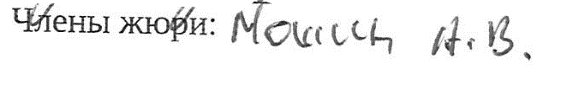 Члены жюри: Мошин А.В.